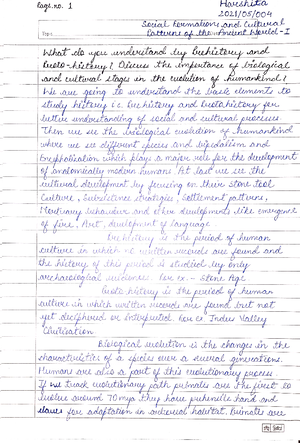 Page no. 1
Harshita
2021/05/004
Social Formations and Cultural
Patterns of the Ancient World - I
What do you understand by Prehistory and
Proto-history? Discuss the importance of biological
and cultural stages in the evolution of humankind?
We are going to understand the basic elements to
study history i.e. Prehistory and Protohistory for
better understanding of social and cultural process.
Then we see the biological evolution of humankind
where we see different species and bipedalism and
Encephalisation which plays a major role for the development
of anatomically modern humans. At last we see the
cultural development by focusing on their stone tool
Culture, Subsistence strategies, Settlement patterns,
Mortuary behaviour and other developments like emergence
of fire, Art, development of language.
Prehistory is the period of human
culture in which no written records are found and
the history of this period is studied by only
archaeological evidences. for ex - Stone Age
Proto history is the period of human
culture in which written records are found but not
yet deciphered or interpreted. for ex Indus Valley
Civilisation
Biological evolution is the changes in the
characteristics of a species over a several generations.
Humans are also a part of this evolutionary process.
If we track evolutionary path primates are the first to
evolve around 70 mya they have prehensile hand and
for adaptation in arboreal habitat. Primates are